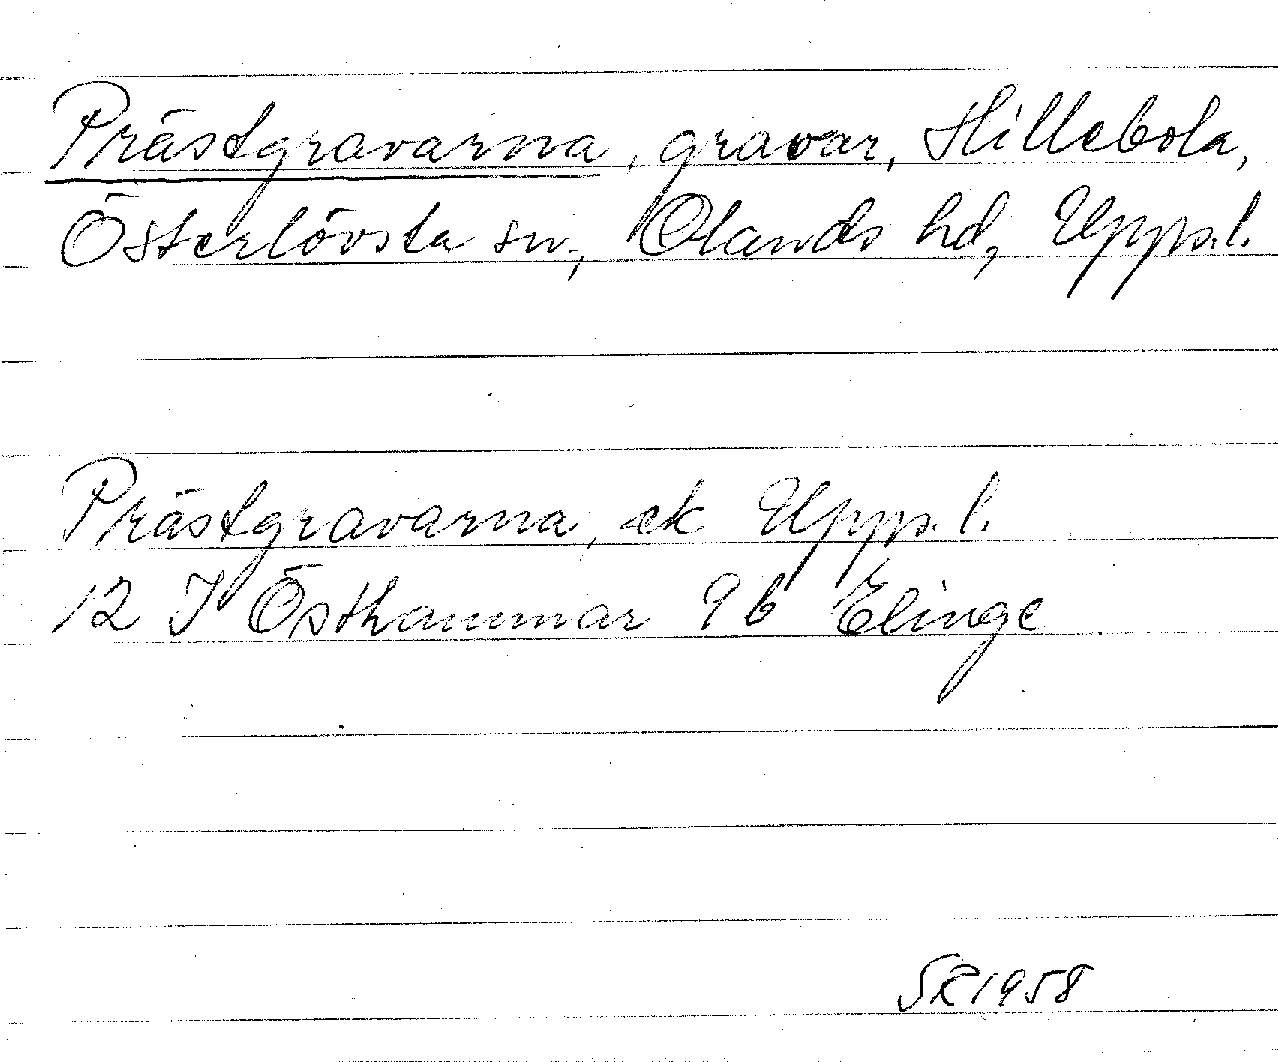 Prästgravarna, gravar, Hillebola,
Österlövsta sn, Olands hd, Upps.l.
Prästgravarna, ek Upps. l.
12 I Östhammar 9b Elinge
SR 1958